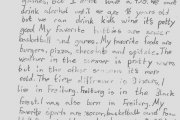 games, but I drive with a
drink alcohol until we are 18 years old
but we can drink kids wine it's pretty
good. My favorite hobbies are soccer
basketball and games. My favorite foods are
burgers, pizza, chocolate and spätzle. The
weather in the summer is pretty warm
but in the other seasons it's more
cold. The time difference is 9 hours, I
live in Freiburg. Freiburg is in the Black
forest. I was also born in Freiburg. My
favorite sports are soccer, basketball and